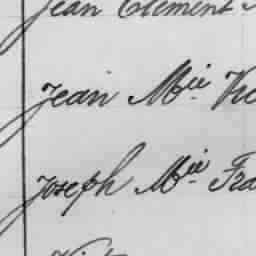 Jean Clément
Jean Mie Vic
Joseph Mie Fra